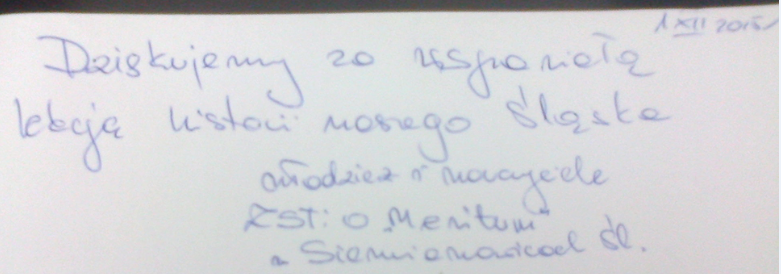 1 XII 2015r
Dziękujemy za wspaniałą
lekcję historii naszego Śląska
młodzież i nauczyciele
ZSTiO „Meritum"
w Siemianowicach Śl.